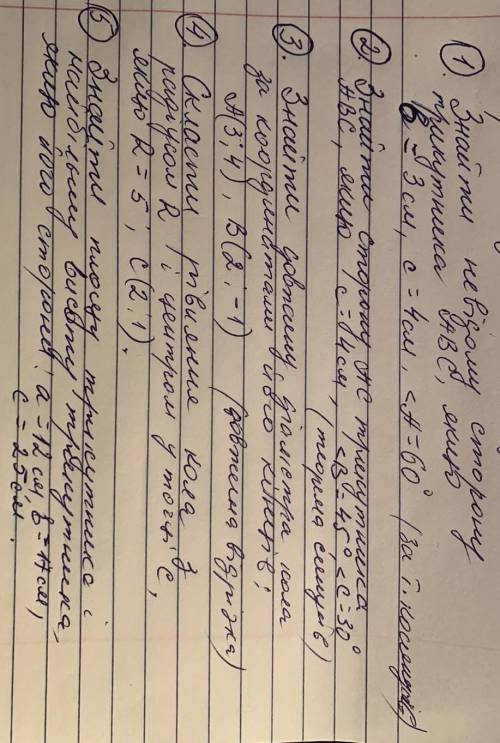 ① Знайти невідому сторону
трикутника ABC, якщо
b = 3 см, c = 4 см, <A = 60° (за т. косинусів)
② Знайти сторону AC трикутника
ABC, якщо c = 4 см, <B = 45° <C = 30°
(теорема синусів)
③. Знайти довжину діаметра кола
за координатами його кінців:
A(3; 4), B(2; -1) (довжина відрізка)
④. Скласти рівняння кола з
радіусом R і центром у точці C,
якщо R = 5; C(2; 1).
⑤ Знайти площу трикутника і
найбільшу висоту трикутника,
якщо його сторони: a = 12 см, b = 17 см,
c = 25 см.